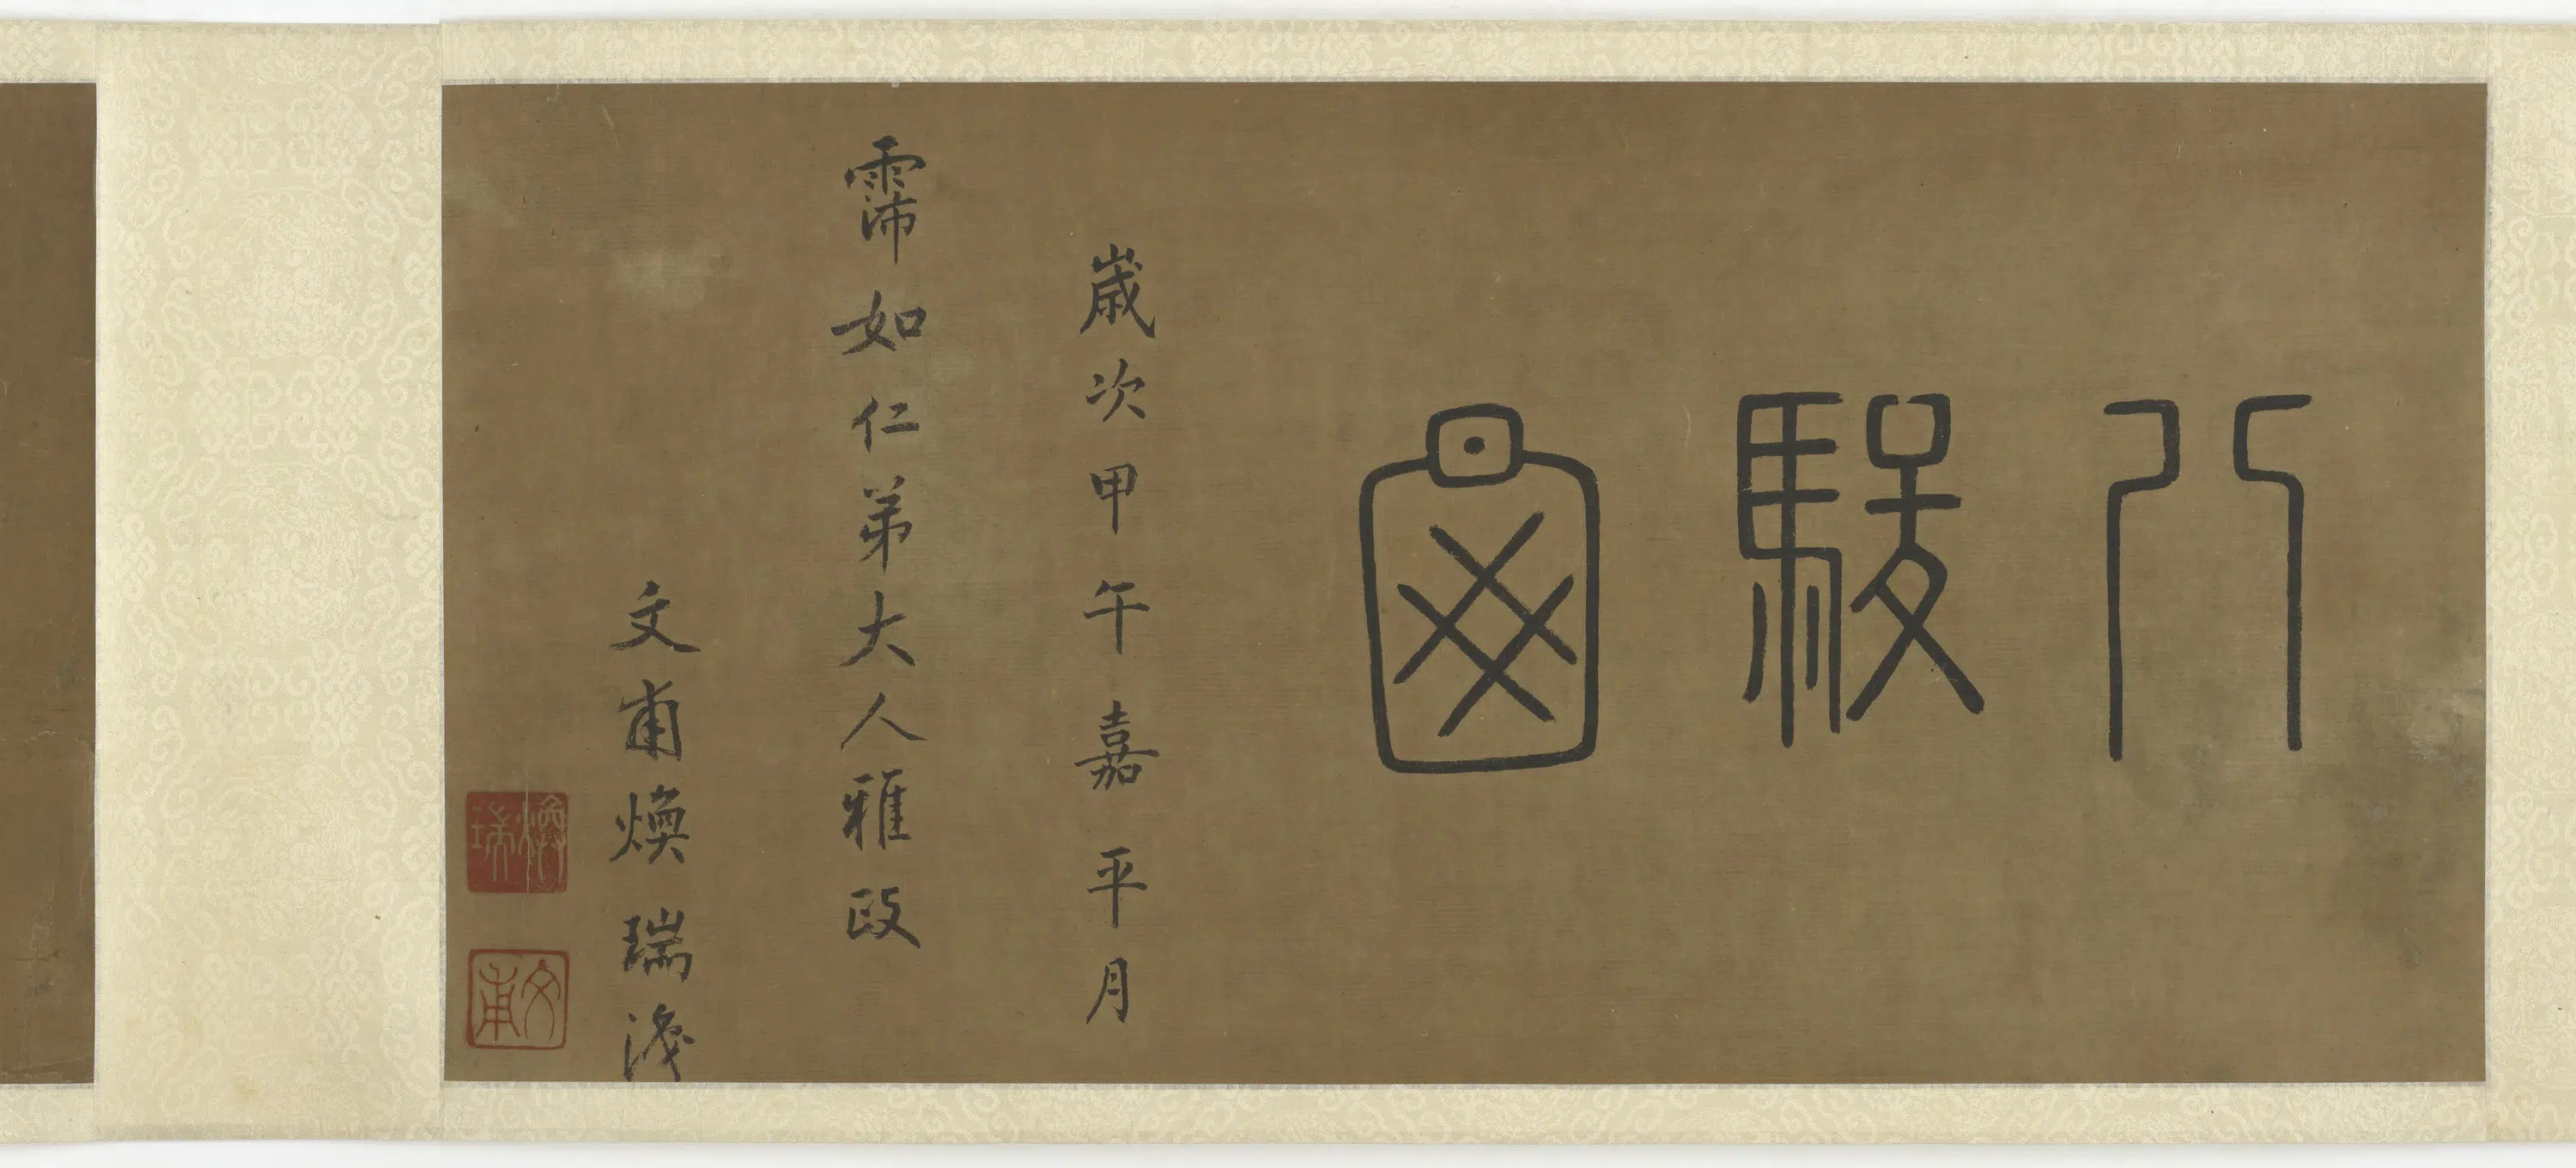 八駿圖
歲次甲午嘉平月
霈如仁弟大人雅政
文甫煥瑞
煥瑞
文甫